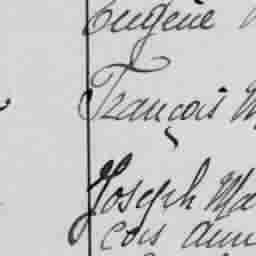 Eugène
François
Joseph Ma
cois